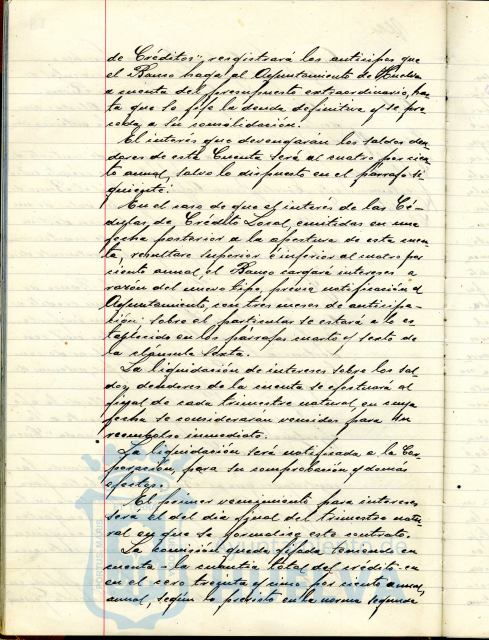 de Créditos", resgistrará los anticipos que
el Banco haga al Ayuntamiento de Huelva
a cuenta del presupuesto extraordinario, has-
ta que se fije la deuda definitiva y se pro-
ceda a su consolidación.
El interés que devengarán los saldos deu-
dores de esta Cuenta será al cuatro por cien-
to anual, salvo lo dispuesto en el párrafo si-
guiente:
En el caso de que el interés de las Cé-
dulas de Crédito Local, emitidas en una
fecha posterior a la apertura de esta cuen-
ta, resultare superior é inferior al cuatro por
ciento anual, el Banco cargará intereses a
razón del nuevo tipo, previa notificación al
Ayuntamiento, con tres meses de anticipa-
ción: sobre el particular se estará a lo es-
tablecido en los párrafos cuarto y sexto de
la cláusula Sexta.
La liquidación de intereses sobre los sal-
dos deudores de la cuenta se efectuará al
final de cada trimestre natural, en cuya
fecha se considerarán vencidos para su
reembolso inmediato.
La liquidación será notificada a la Cor-
poración, para su comprobación y demás
efectos.
El primer vencimiento para intereses
será el del día final del trimestre natu-
ral en que se formalice este contrato.
La comisión queda fijada teniendo en
cuenta la cuantía total del crédito en
en el cero treinta y uno por ciento anual,
anual, según lo previsto en la norma segunda
Ayuntamiento de
HUELVA